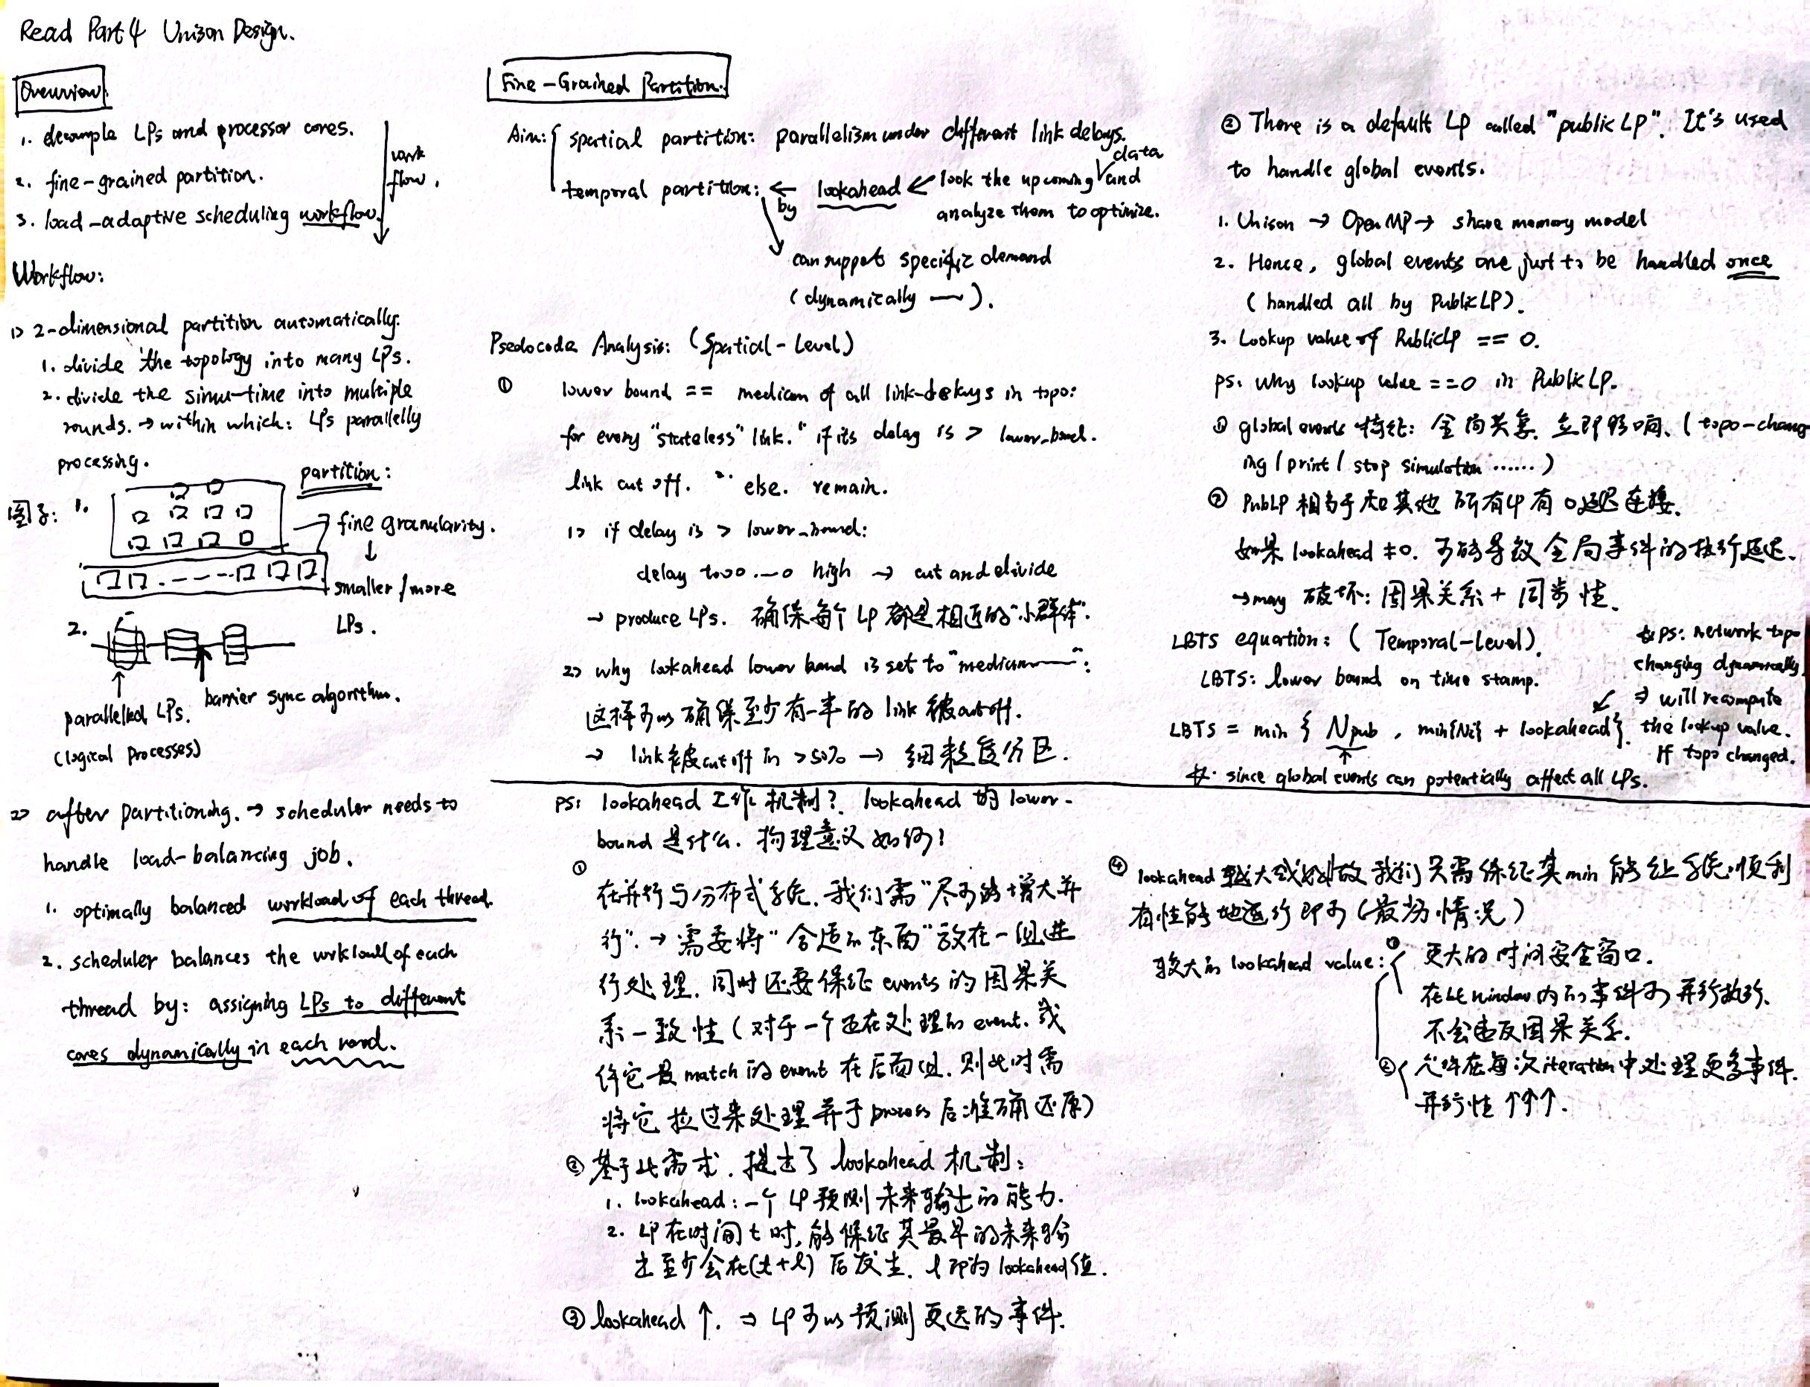 Read Part 4 Unison Design.
Overview.
1. decouple LPs and processor cores.
2. fine-grained partition.
3. load-adaptive scheduling workflow.
work flow.
Workflow:
1> 2-dimensional partition automatically.
1. divide the topology into many LPs.
2. divide the simu-time into multiple
rounds. → within which: LPs parallelly
processing.
图示: 1.
partition:
fine granularity.
↓
smaller / more
LPs.
2.
parallelled LPs.
barrier sync algorithm.
(logical processes)
2> after partitioning. → scheduler needs to
handle load-balancing job.
1. optimally balanced workload of each thread.
2. scheduler balances the workload of each
thread by: assigning LPs to different
cores dynamically in each round.
Fine-Grained Partition.
Aim: { spatial partition: parallelism under different link delays.
temporal partition: ← by lookahead ← look the upcoming data and
analyze them to optimize.
can support specific demand
(dynamically —).
Psedocode Analysis: (Spatial-Level)
① lower bound == medium of all link-delays in topo:
for every "stateless" link. " if its delay is > lower_bound.
link cut off. " else. remain.
1> if delay is > lower_bound:
delay tooo...o high → cut and divide
→ produce LPs. 确保每个 LP 都是相近的"小群体".
2> why lookahead lower bound is set to "medium——":
这样可以确保至少有一半的 link 被cut off.
→ link被cut off in >50% → 细粒度分区.
② There is a default LP called "public LP". It's used
to handle global events.
1. Unison → OpenMP → share memory model
2. Hence, global events are just to be handled once
(handled all by PublicLP).
3. Lookup value of PublicLP == 0.
ps: why lookup value ==0 in PublicLP.
① global events 特征: 全局共享. 立即影响. (topo-chang
ing / print / stop simulation ......)
② PubLP 相当于和其他所有LP有0延迟连接.
如果 lookahead ≠0. 可能导致全局事件的执行延迟.
→ may 破坏: 因果关系 + 同步性.
LBTS equation: (Temporal-Level).
LBTS: lower bound on time stamp.
LBTS = min { Npub , min{Ni} + lookahead}.
ps: network topo
changing dynamically
⇒ will recompute
the lookup value.
If topo changed.
since global events can potentially affect all LPs.
ps: lookahead 工作机制? lookahead 的 lower-
bound 是什么. 物理意义如何?
① 在并行与分布式系统. 我们需"尽可能增大并
行". → 需要将"合适的东西"放在一组进
行处理. 同时还要保证 events 的因果关
系一致性 (对于一个正在处理的 event. 或
许它最 match 的 event 在后面组. 则此时需
将它拉过来处理并于 process 后准确还原)
② 基于此需求. 提出了 lookahead 机制:
1. lookahead: 一个 LP 预测未来输出的能力.
2. LP 在时间 t 时, 能保证其最早的未来输
出至少会在(t+l) 后发生. l 即为 lookahead 值.
③ lookahead ↑. ⇒ LP可以预测更远的事件.
④ lookahead 越大越好 故我们只需保证其 min 能让系统顺利
有性能地运行即可 (最坏情况)
较大的 lookahead value: { ① 更大的时间安全窗口.
在此 window 内的事件可并行执行.
不会违反因果关系.
② 允许在每次 iteration 中处理更多事件.
并行性 ↑↑↑.